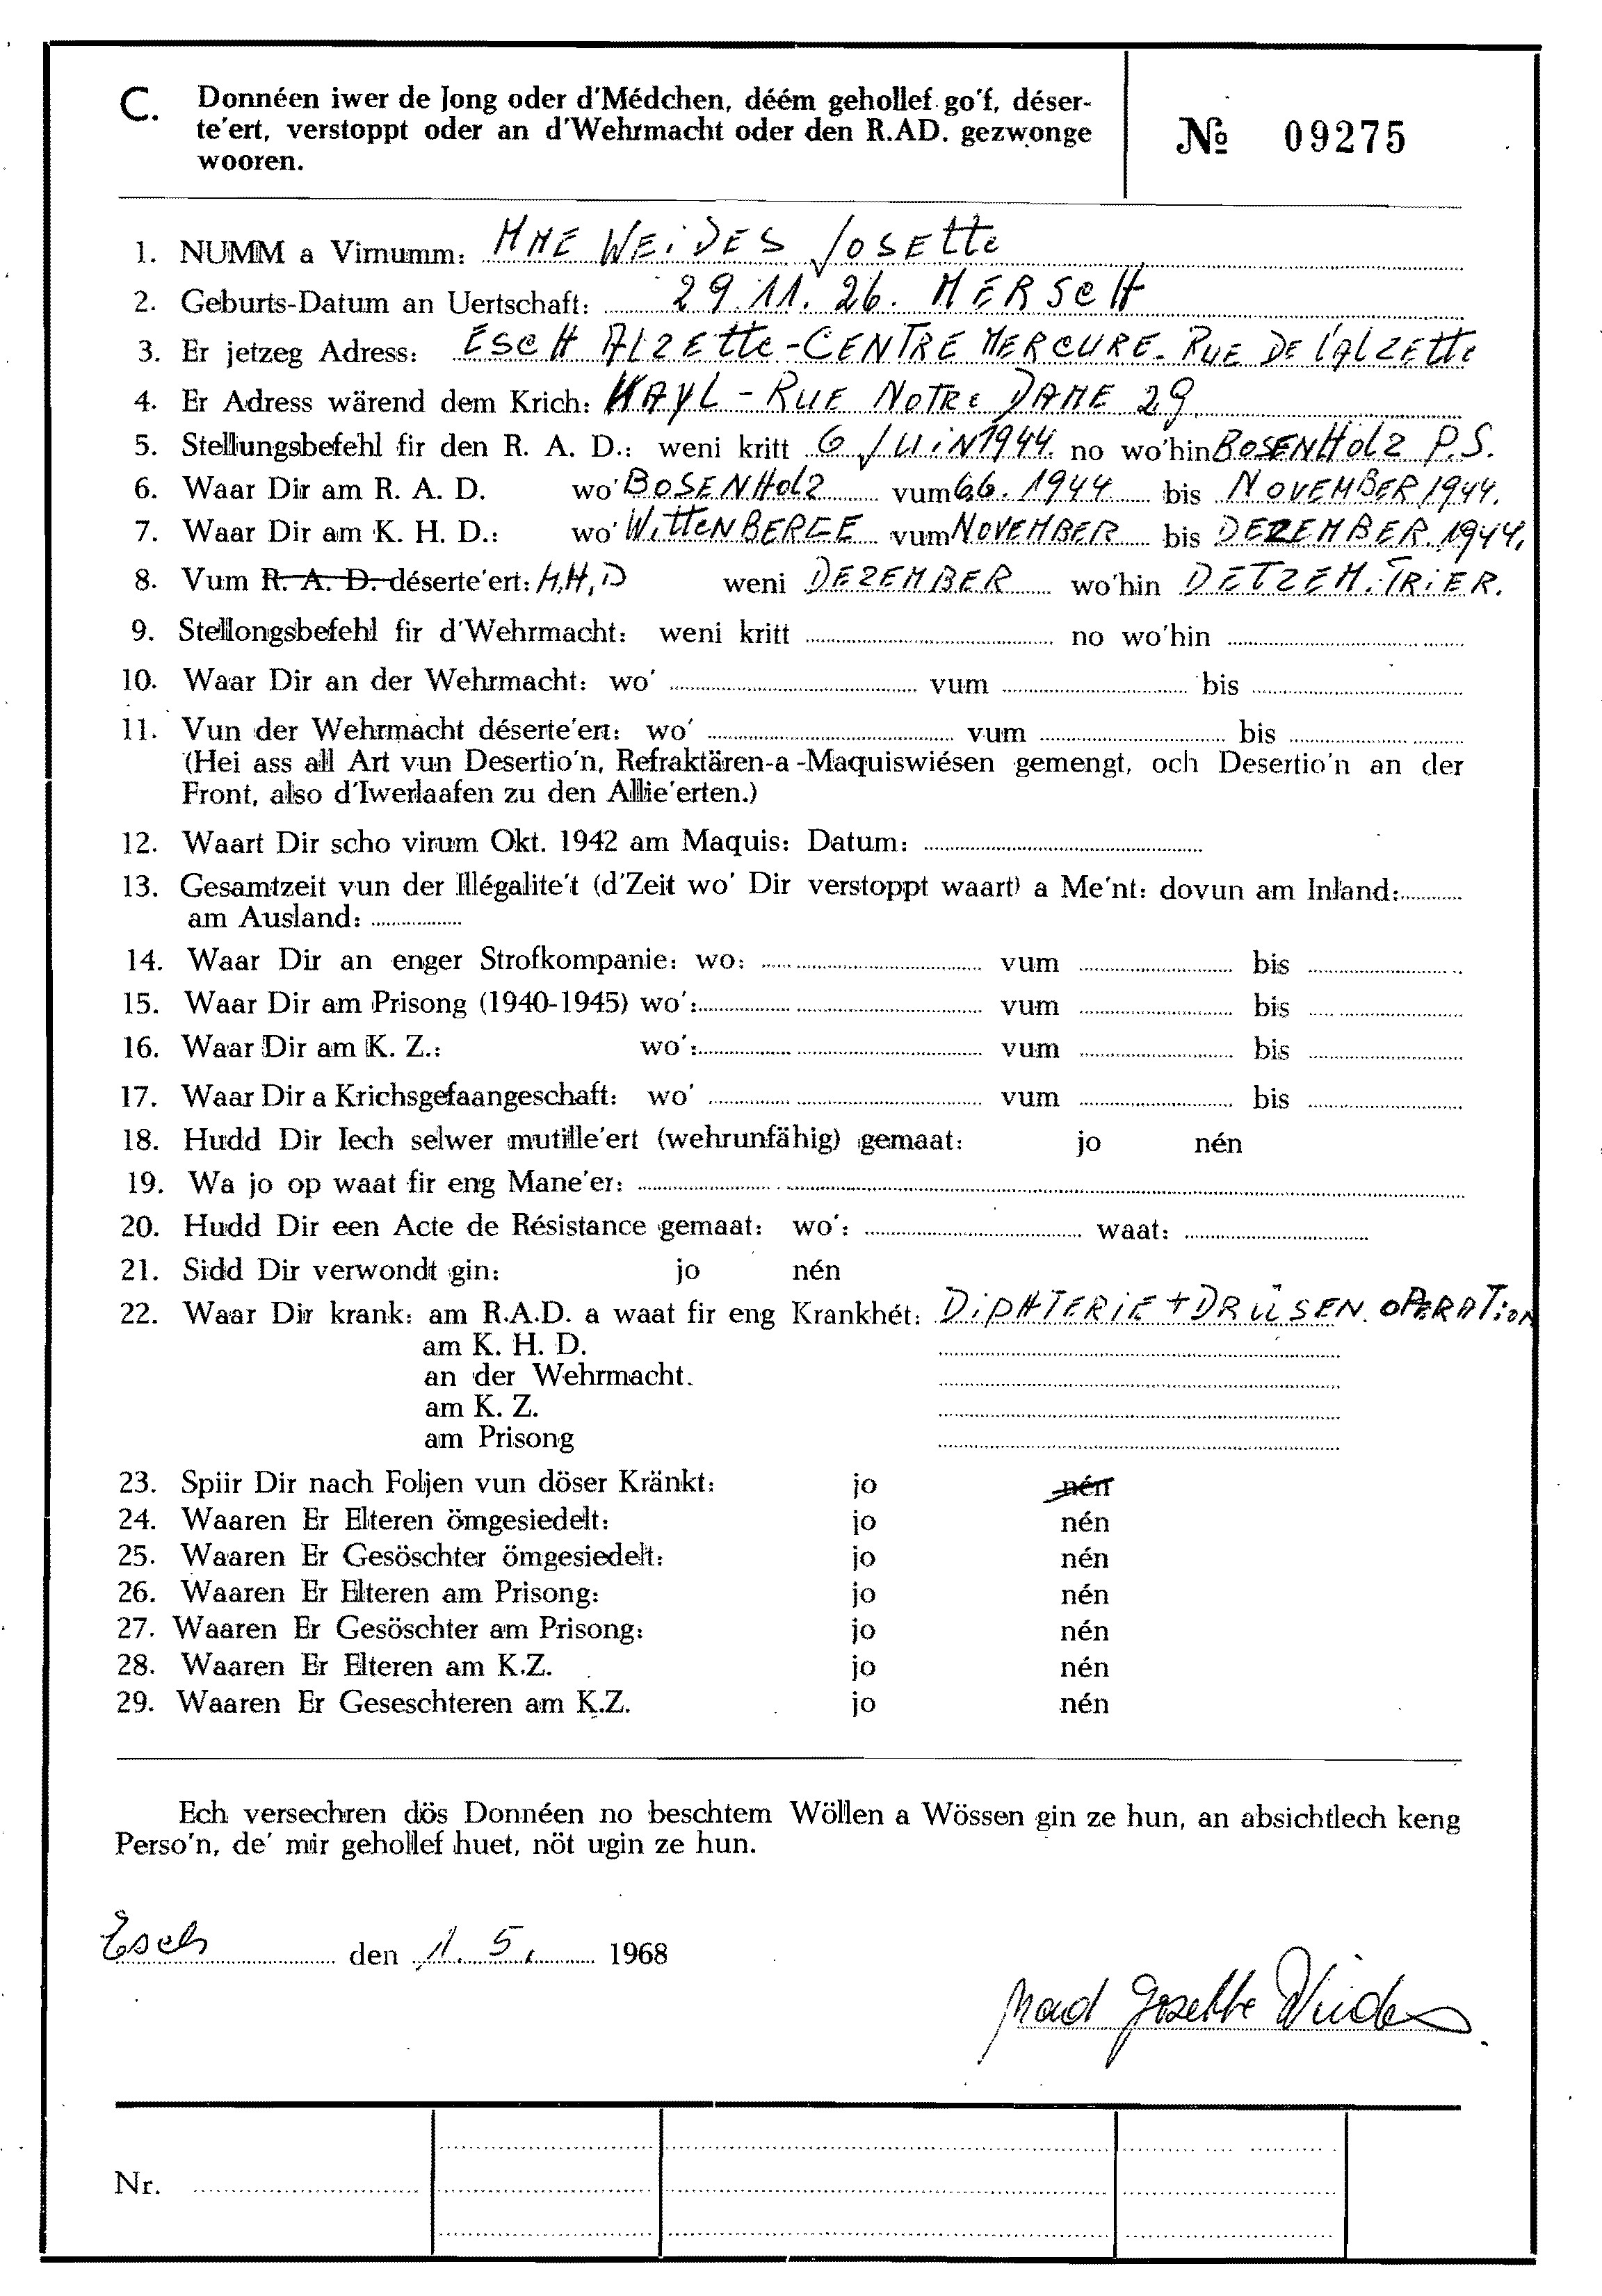 C. Donnéen iwer de Jong oder d'Médchen, déém gehollef go'f, déser-
te'ert, verstoppt oder an d'Wehrmacht oder den R.AD. gezwonge
wooren.
№ 09275
1. NUMM a Virnumm: MME WEIDES JOSEttE
2. Geburts-Datum an Uertschaft: 29.11.26. MERSCH
3. Er jetzeg Adress: ESCH AlZEttE-CENTRE MERCURE. RUE DE l'AlZEttE
4. Er Adress wärend dem Krich: KAYL - RUE NOTRE DAME 29
5. Stellungsbefehl fir den R. A. D.: weni kritt 6 JUIN 1944. no wo'hin BOSENHOLZ P.S.
6. Waar Dir am R. A. D. wo' BOSENHOlZ vum 6.6. 1944 bis NOVEMBER 1944.
7. Waar Dir am K. H. D.: wo' WittENBERGE vum NOVEMBER bis DEZEMBER. 1944.
8. Vum R. A. D. déserte'ert: H.H.D weni DEZEMBER wo'hin DETZEM. TRIER.
9. Stellongsbefehl fir d'Wehrmacht: weni kritt no wo'hin
10. Waar Dir an der Wehrmacht: wo' vum bis
11. Vun der Wehrmacht déserte'ert: wo' vum bis
(Hei ass all Art vun Desertio'n, Refraktären-a-Maquiswiésen gemengt, och Desertio'n an der
Front, also d'Iwerlaafen zu den Allie'erten.)
12. Waart Dir scho virum Okt. 1942 am Maquis: Datum:
13. Gesamtzeit vun der Illégalite't (d'Zeit wo' Dir verstoppt waart) a Me'nt: dovun am Inland:
am Ausland:
14. Waar Dir an enger Strofkompanie: wo: vum bis
15. Waar Dir am Prisong (1940-1945) wo': vum bis
16. Waar Dir am K. Z.: wo': vum bis
17. Waar Dir a Krichsgefaangeschaft: wo' vum bis
18. Hudd Dir Iech selwer mutille'ert (wehrunfähig) gemaat: jo nén
19. Wa jo op waat fir eng Mane'er:
20. Hudd Dir een Acte de Résistance gemaat: wo': waat:
21. Sidd Dir verwondt gin: jo nén
22. Waar Dir krank: am R.A.D. a waat fir eng Krankhét: DiPHTERIE + DRÜSEN. OPERATION
am K. H. D.
an der Wehrmacht.
am K. Z.
am Prisong
23. Spiir Dir nach Foljen vun döser Kränkt: jo nén
24. Waaren Er Elteren ömgesiedelt: jo nén
25. Waaren Er Gesöschter ömgesiedelt: jo nén
26. Waaren Er Elteren am Prisong: jo nén
27. Waaren Er Gesöschter am Prisong: jo nén
28. Waaren Er Elteren am K.Z. jo nén
29. Waaren Er Geseschteren am K.Z. jo nén
Ech versechren dös Donnéen no beschtem Wöllen a Wössen gin ze hun, an absichtlech keng
Perso'n, de' mir gehollef huet, nöt ugin ze hun.
Esch den 11. 5. 1968
Mad Josette Weides
Nr.